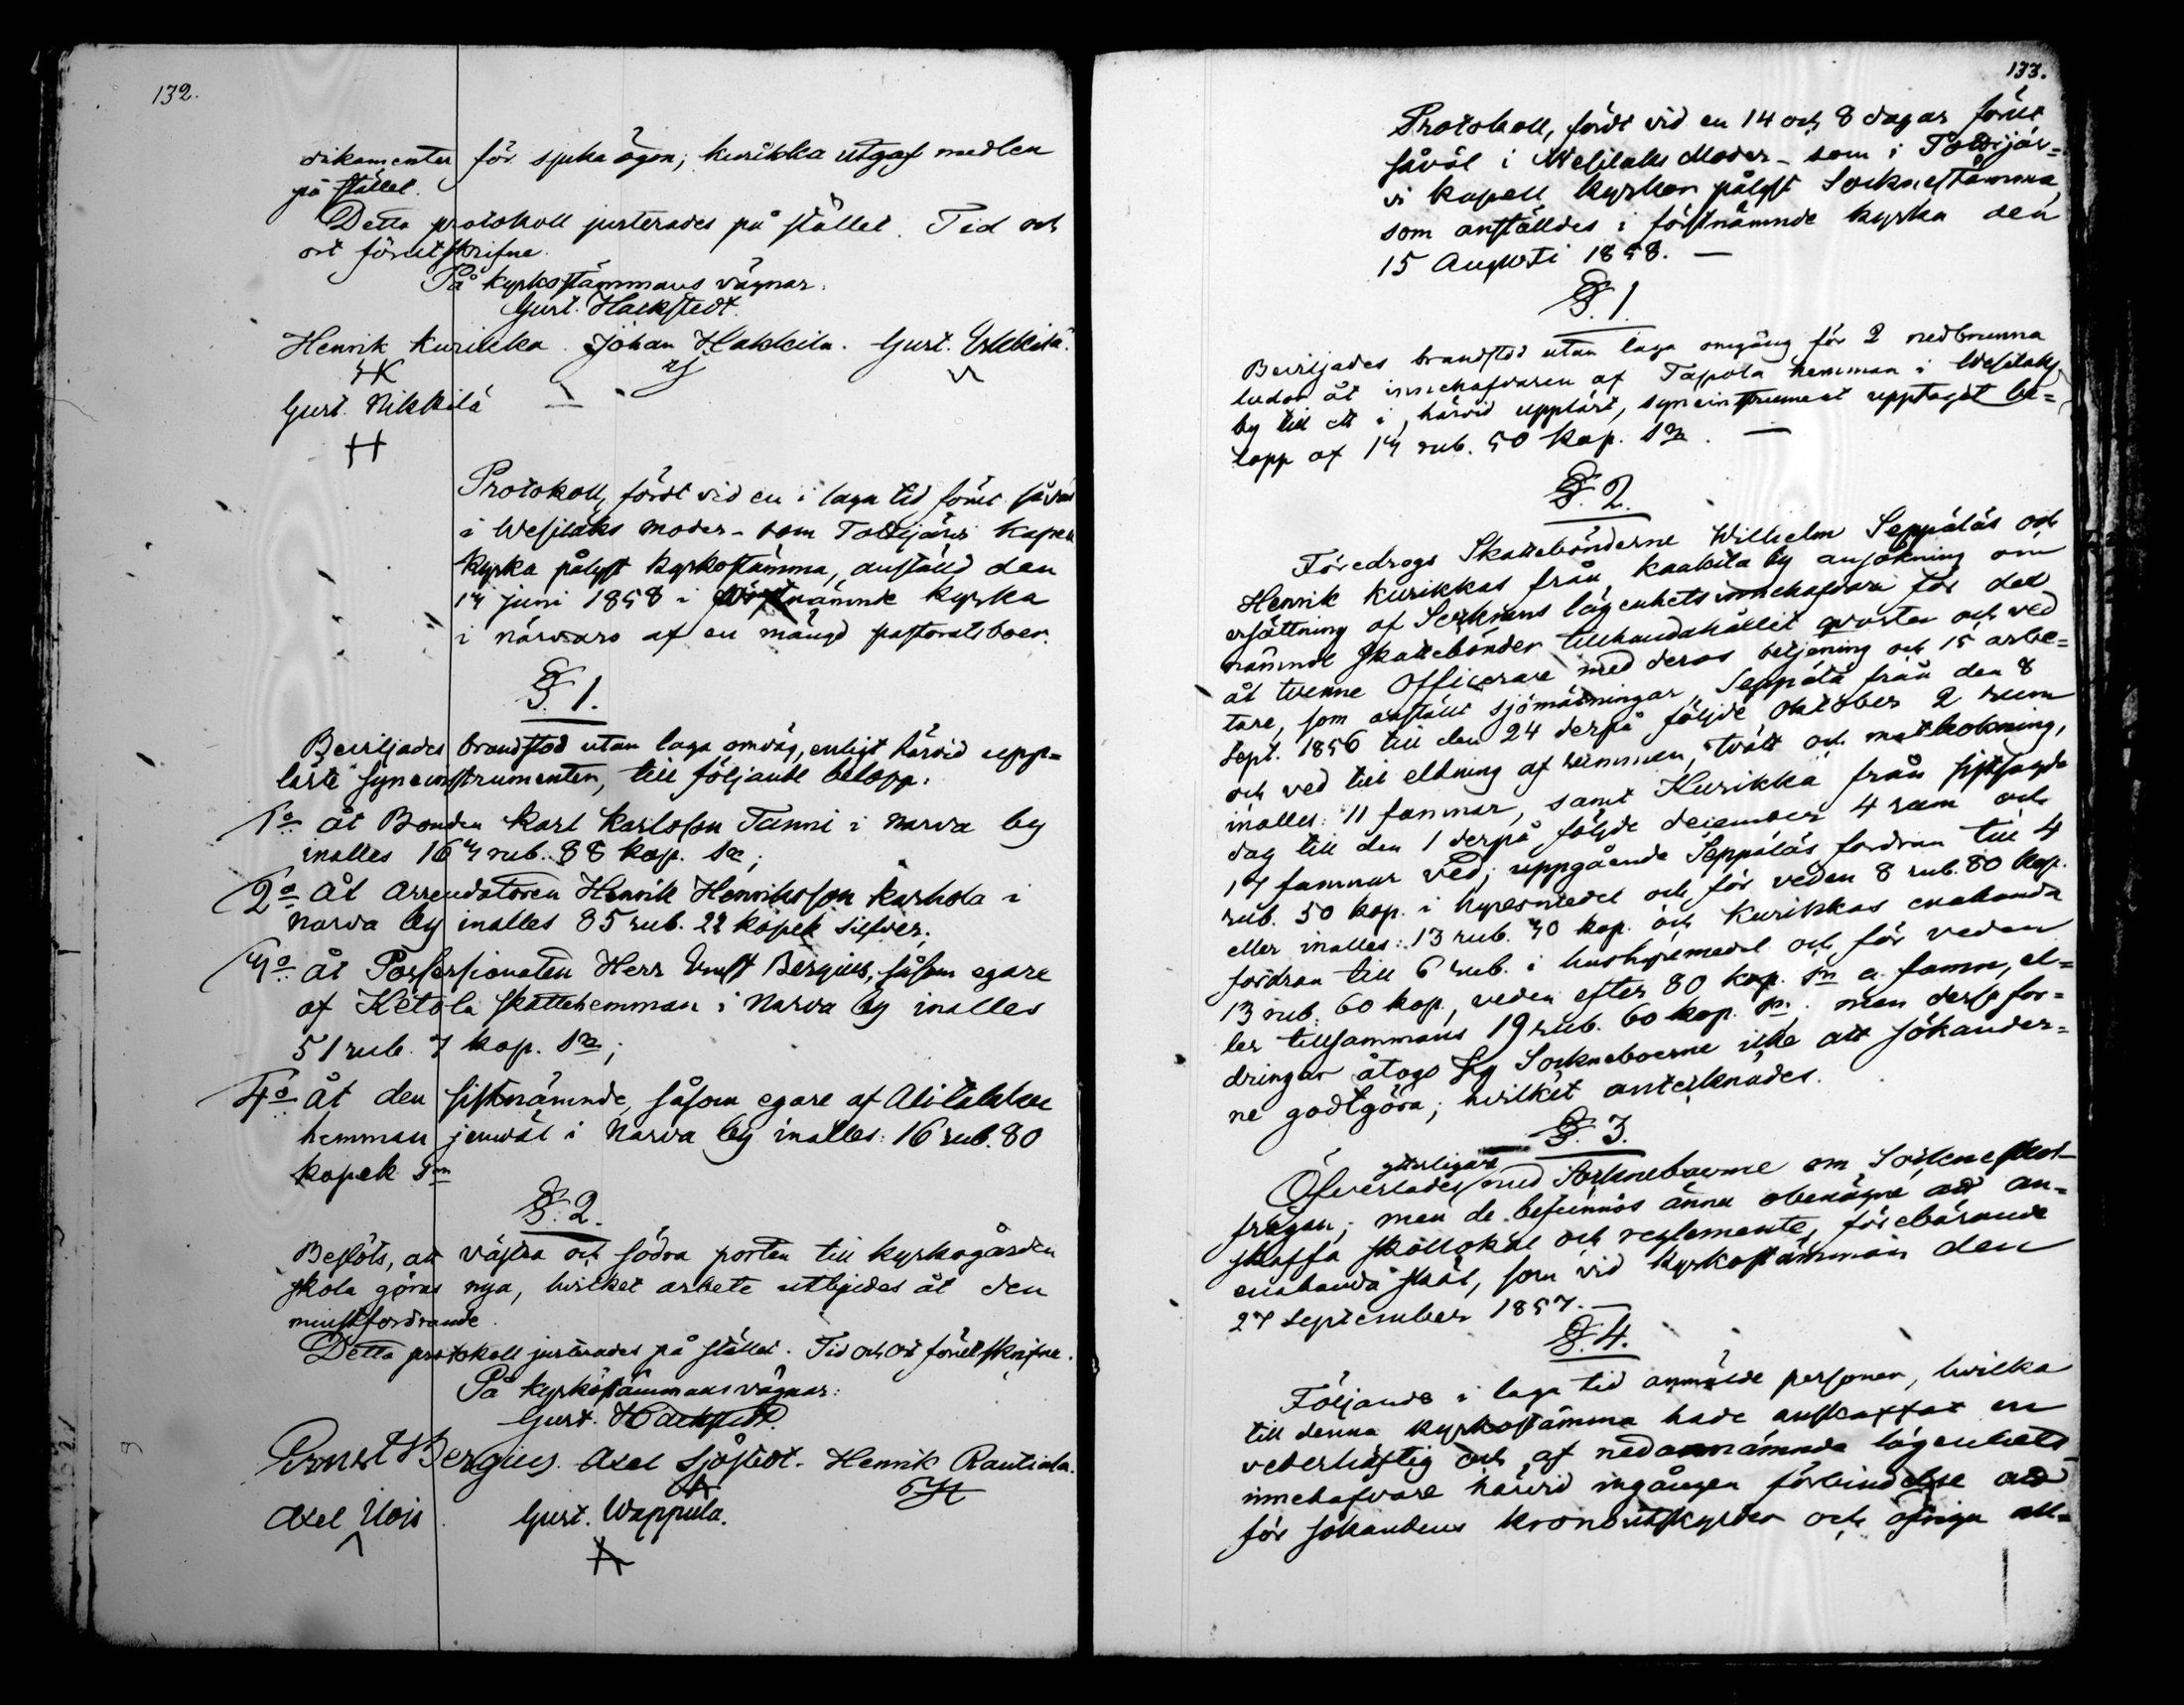 132.
dikamenter för sjuka ögon; Kurikka utgaf medlen
på stället.
Detta protokoll justerades på stället. Tid och
ort förutskrifne.
På kyrkostämmans vägnar:
Gust. Hackstedt.
Henrik Kurikka. Johan Hakkila. Gust. Erkkilä.
Gust. Nikkilä —
Protokoll, fördt vid en i laga tid förut såväl
i Wesilaks moder- som Tottijärvi Kapell
kyrka pålyst kyrkostämma, anställd den
14 juni 1858 i förstnämnde kyrka
i närvaro af en mängd pastoratsboer.
§. 1.
Beviljades brandstod utan laga omväg, enligt härvid upp-
läste syneinstrumenter, till följande belopp:
1o åt Bonden Karl Karlsson Tanni i Narva by
inalles 167 rub. 88 kop. Sr;
2o åt arrendatoren Henrik Henriksson Karhola i
Narva by inalles 85 rub. 22 kopek silfver;
3o åt Possessionaten Herr Ernst Bergius, såsom egare
af Ketola skattehemman i Narva by inalles
51 rub. 7 kop. Sr;
4o åt den sistnämnde, såsom egare af Alitalkka
hemman jemväl i Narva by inalles: 16 rub. 80
kopek Sr
§. 2.
Beslöts, att västra och södra porten till kyrkogården
skola göras nya, hvilket arbete utbjudes åt den
minstfordrande.
Detta protokoll justerades på stället. Tid och ort förutskrifne.
På kyrkostämmans vägnar:
Gust. Hackstedt.
Ernst Bergius. Axel Sjöstedt. Henrik Rautiala.
Axel Uois. Gust. Wappula.
133.
Protokoll, fördt vid en 14 och 8 dagar förut
såväl i Wesilaks Moder- som i Tottijär-
vi kapell kyrkor pålyst Sockenestämma,
som anställdes i förstnämnde kyrka den
15 Augusti 1858. —
§. 1.
Beviljades brandstod utan laga omgång för 2 nedbrunna
lador åt innehafvaren af Tapola hemman i Wesilaks
by till ett i, härvid uppläst, syneinstrument upptaget be-
lopp af 14 rub. 50 kop. Sr. —
§. 2.
Föredrogs Skattebönderne Wilhelm Seppäläs och
Henrik Kurikkas från Kaakila by ansökning om
ersättning af Socknens lägenhetsinnehafvare för det
nämnde skattebönder tillhandahållit qvarter och ved
åt tvenne Officerare med deras betjening och 15 arbe-
tare, som anställt sjömätningar, Seppälä från den 8
Sept. 1856 till den 24 derpå följde Oktober 2 rum
och ved till eldning af rummen, tvätt och matkokning,
inalles: 11 famnar, samt Kurikka från sistsagde
dag till den 1 derpå följde december 4 rum och
17 famnar ved; uppgående Seppäläs fordran till 4
rub. 50 kop. i hyresmedel och för veden 8 rub. 80 kop.
eller inalles: 13 rub. 30 kop. och Kurikkas enahanda
fordran till 6 rub. i hushyremedel och för veden
13 rub. 60 kop., veden efter 80 kop. Sr a famn, el-
ler tillsammans 19 rub. 60 kop. Sr; men dessa for-
dringar åtogo sig Sockneboerne icke att sökander-
ne godtgöra; hvilket antecknades.
§. 3.
Öfverlades ytterligare med Sockneboerne om Sockneskol-
frågan; men de befunnos ännu obenägne att an-
skaffa skollokal och reglemente, förebärande
enahanda skäl, som vid kyrkostämman den
27 September 1857. —
§. 4.
Följande i laga tid anmälde personer, hvilka
till denna kyrkostämma hade anskaffat en
vederhäftig och af nedannämnda lägenhets-
innehafvare härvid ingången förbindelse att
för sökandens kronoutskylder och öfriga all-